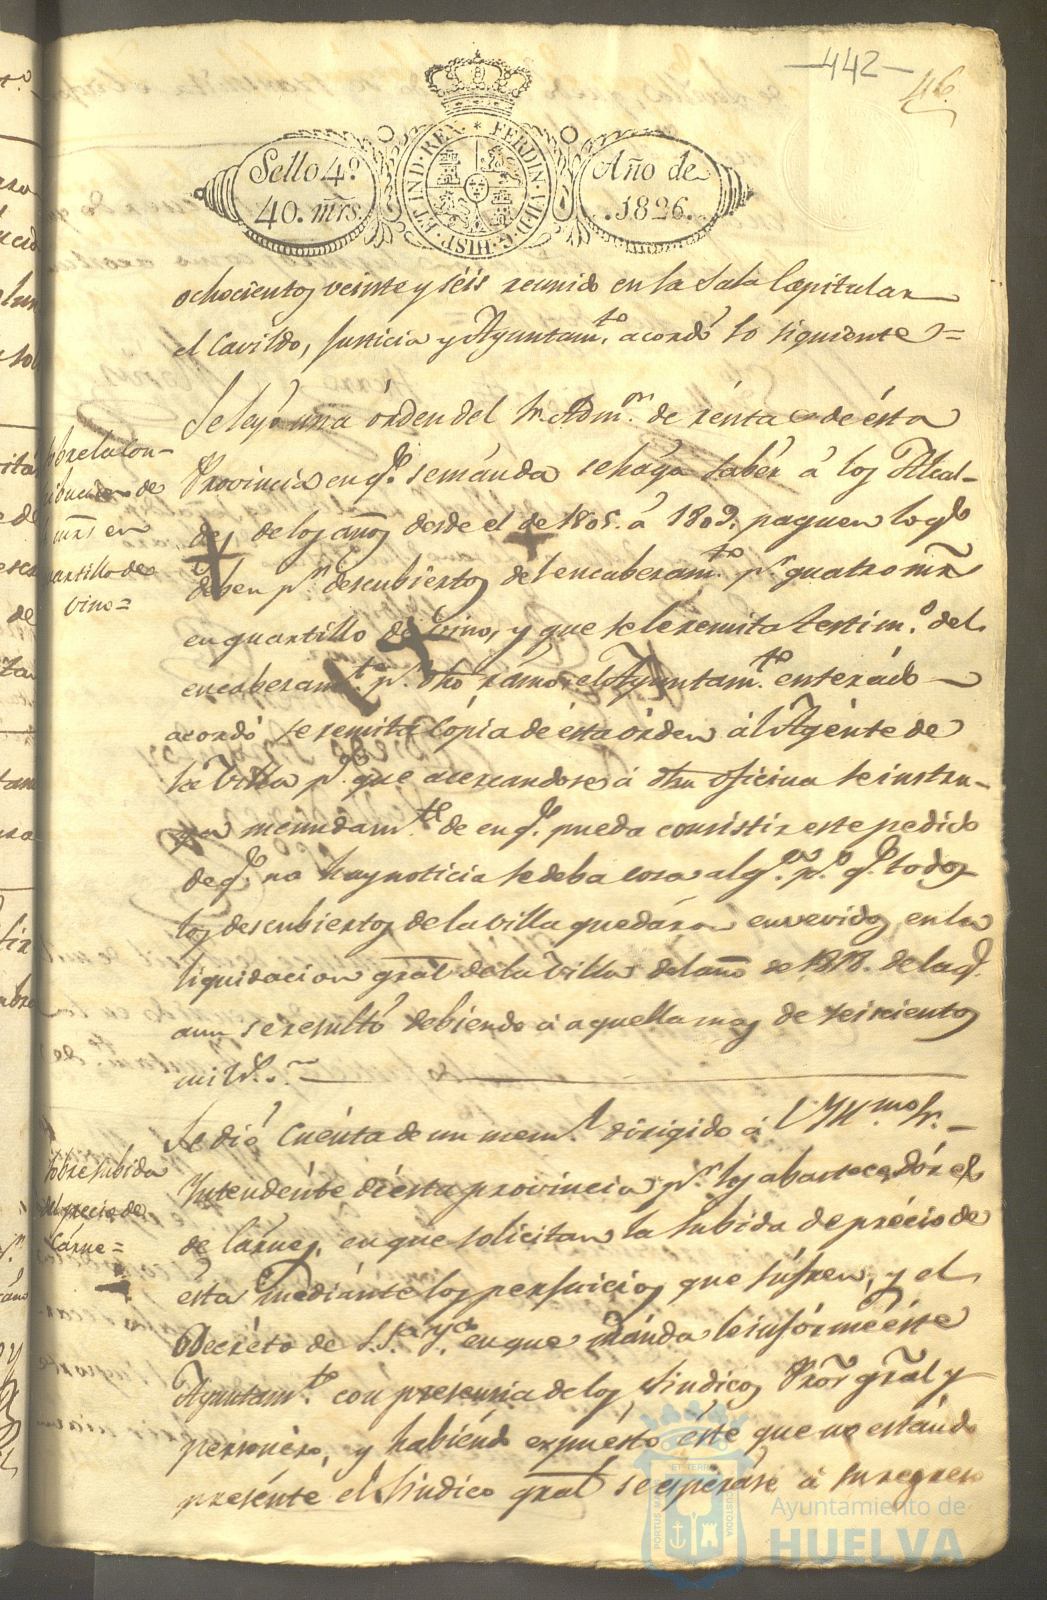 —442—
116.
Sello 4º.
40. mrs.
HISP. ET IND. REX * FERDIN. VII. D. G.
Año de
.1826.
ochocientos veinte y séis reunido en la Sala Capitular
el Cavildo, Justicia y Ayuntam.to acordó lo siguiente =
Sobre la con-
tribucion de
4 mrs en
quartillo de
vino=
Se leyó una órden del Sr. Adm.or de rentas de ésta
Provincia en q.e se mánda se hága sabér á los Alcal-
des de los años desde el de 1805. á 1809. paguen lo q.e
deben p.r descubiertos del encabezam.to p.r quatro mrs
en quartillo de vino, y que se le remita testim.o del
encabezam.to p.r dho rámo, el Ayuntam.to enterádo
acordó se remita cópia de ésta órden ál Agénte de
la Villa p.a que acercandose á dha oficina se instru-
ya menudam.te de en q.e pueda consistir este pedido
de q.e no hay noticia se deba cosa alg.na p.r q.e todos
los descubiertos de la villa quedáron envevidos en la
liquidacion gral de la Villa del año de 1818. de la q.e
aun se resultó debiendo á aquella mas de seiscientos
mil r.s
Sobre subida
del precio de
Carne=
Se dió Cuénta de un mem.l dirigido á l Yll.mo Sr.
Yntendénte de ésta provincia p.r los abastecedóres
de Cárnes, en que solicitan la subida de précio de
ésta mediánte los perjuicios que súfren, y el
Decréto de S.S.a Y.a en que mánda le infórme éste
Ayuntam.to con presencia de los Síndicos Pror grál y
personéro, y habiéndo expuésto éste que no estándo
presénte el Síndico grál se esperáse á su regreso
PORTUS MARIS ET TERRAE CUSTODIA
Ayuntamiento de
HUELVA